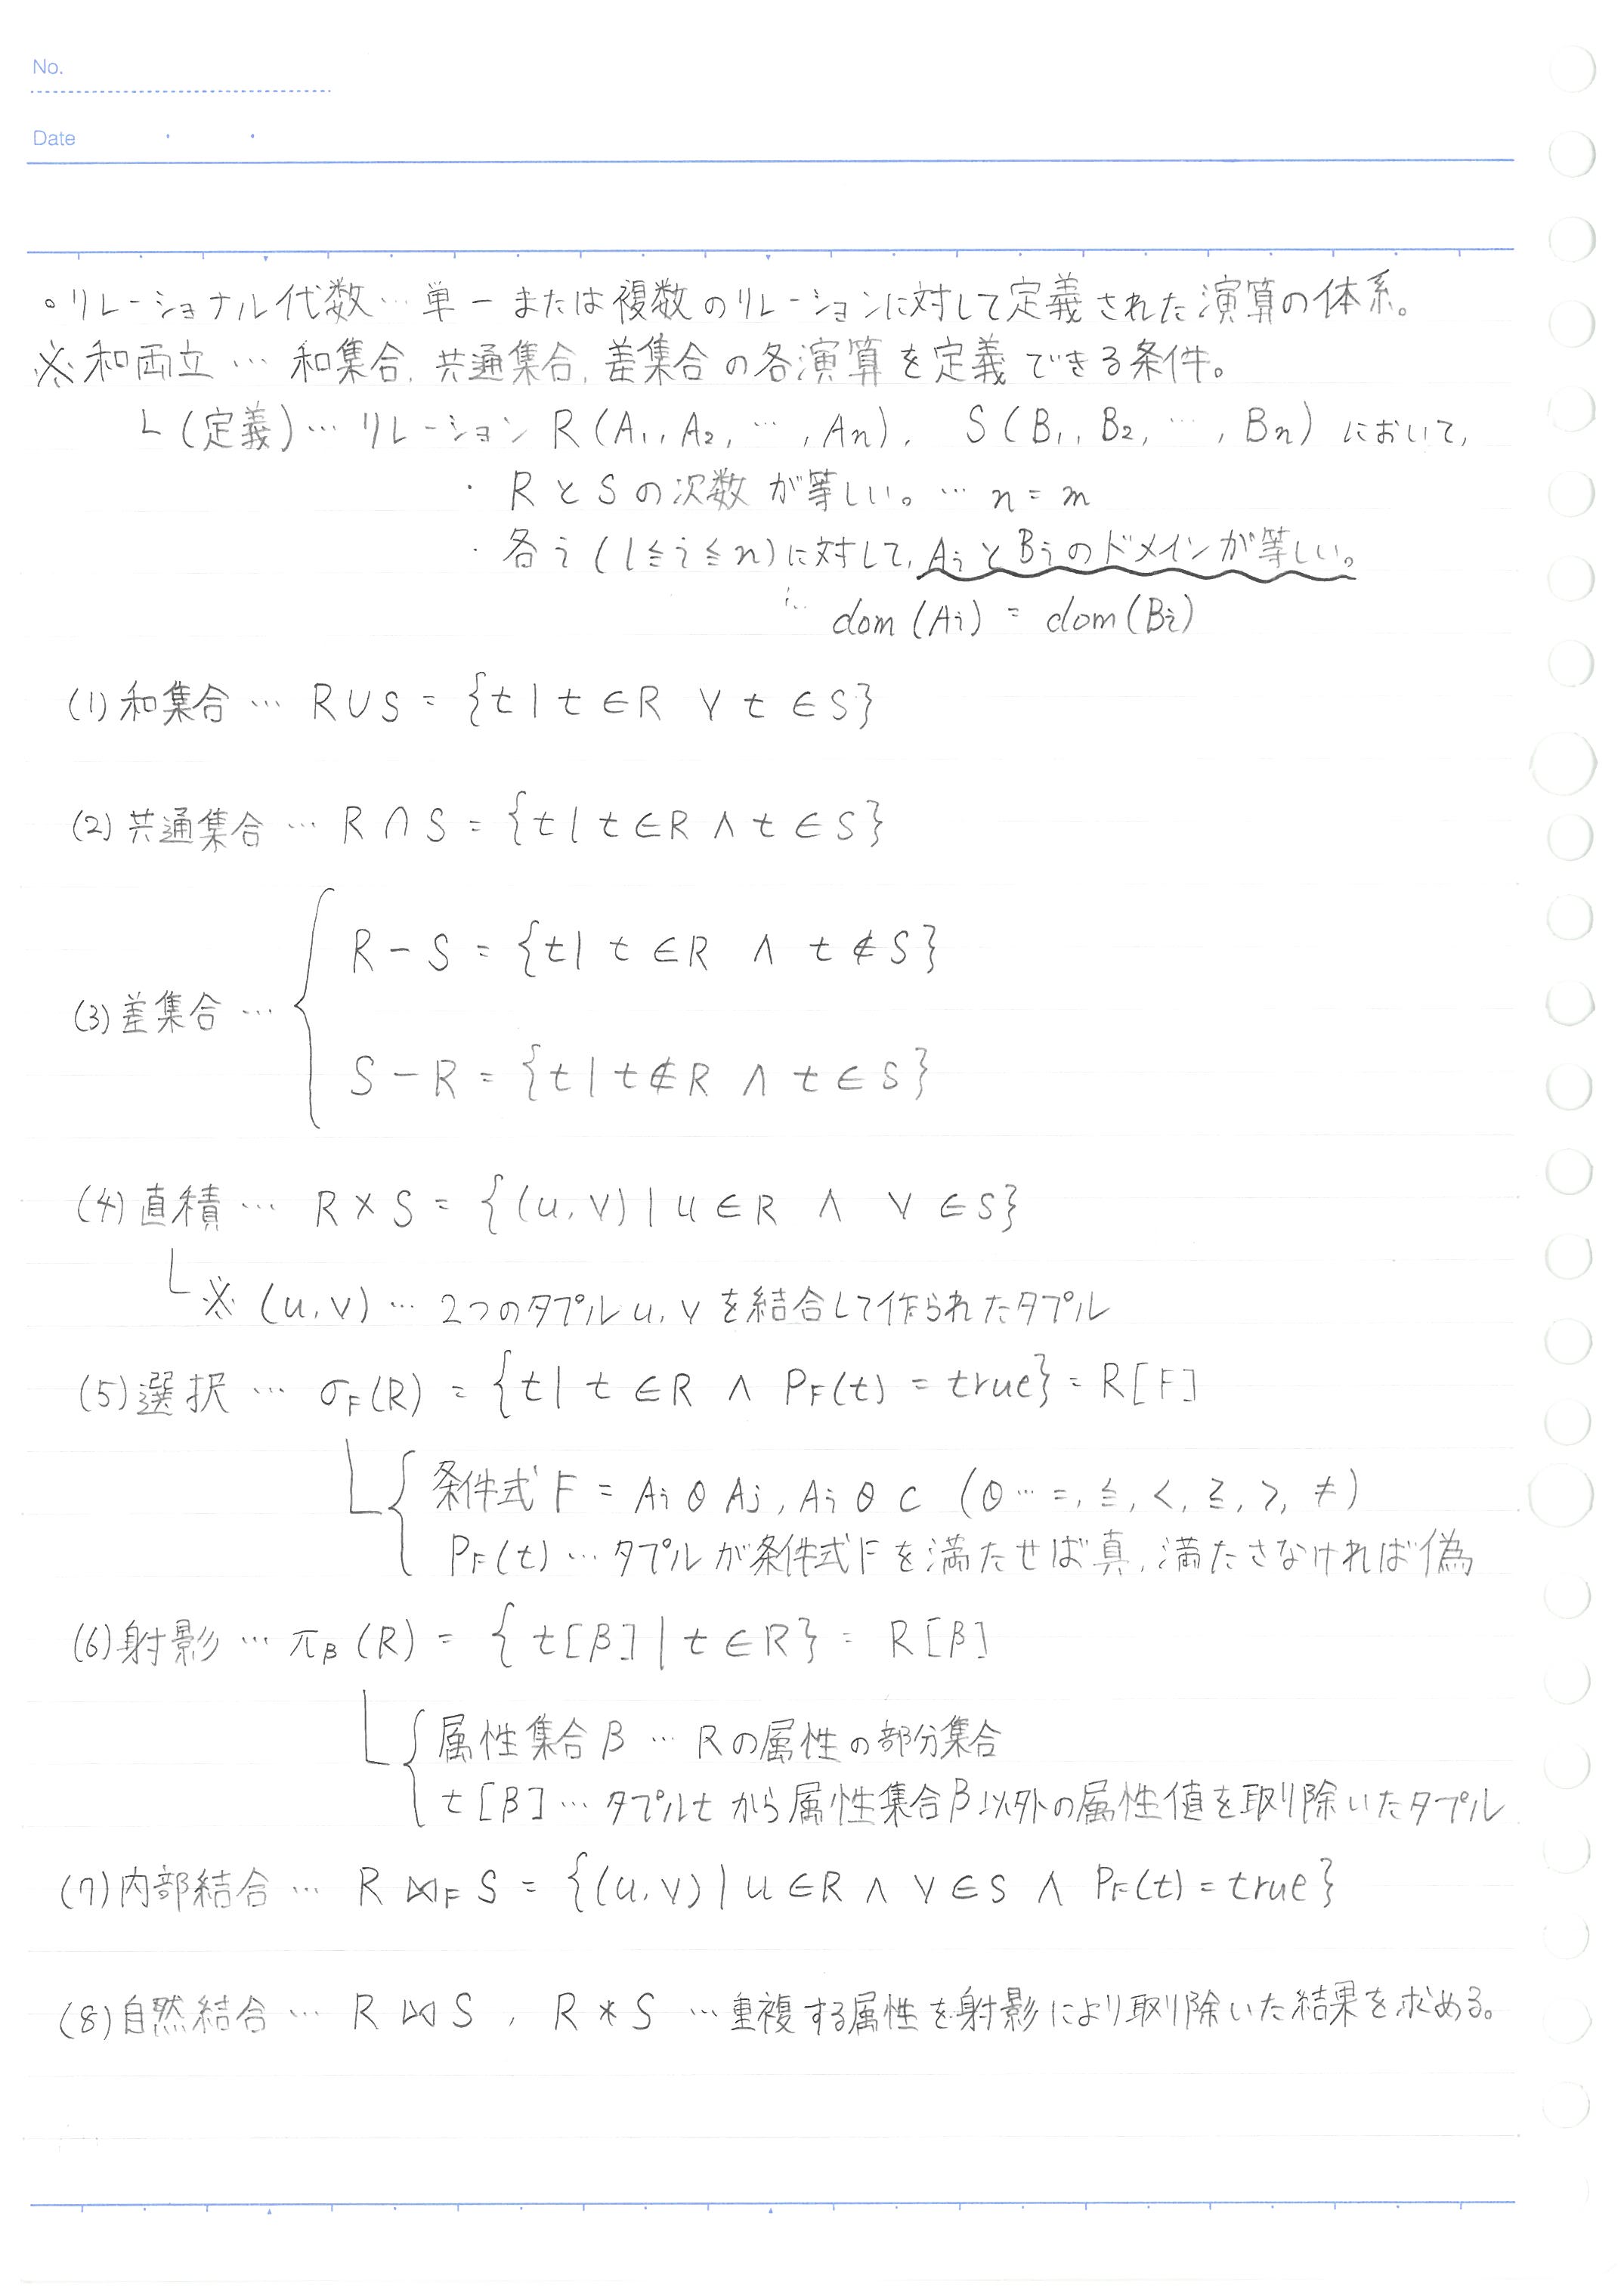 No.
Date
。リレーショナル代数…単一または複数のリレーションに対して定義された演算の体系。
※和両立…和集合,共通集合,差集合の各演算を定義できる条件。
└(定義)…リレーション R(A₁,A₂,…,An), S(B₁,B₂,…,Bn) において,
・RとSの次数が等しい。…n=m
・各i(1≦i≦n)に対して,AiとBiのドメインが等しい。
dom(Ai)=dom(Bi)
(1)和集合… R∪S={t|t∈R ∨ t∈S}
(2)共通集合… R∩S={t|t∈R∧t∈S}
(3)差集合…
R-S={t|t∈R ∧ t∉S}
S-R={t|t∉R ∧ t∈S}
(4)直積… R×S={(u,v)|u∈R ∧ v∈S}
└※(u,v)…2つのタプルu,vを結合して作られたタプル
(5)選択… σF(R)={t|t∈R ∧ PF(t)=true}=R[F]
条件式F=AiθAj,Aiθc (θ…=,≦,<,≧,>,≠)
PF(t)…タプルが条件式Fを満たせば真,満たさなければ偽
(6)射影… πβ(R)={t[β]|t∈R}=R[β]
属性集合β…Rの属性の部分集合
t[β]…タプルtから属性集合β以外の属性値を取り除いたタプル
(7)内部結合… R⋈F S={(u,v)|u∈R∧v∈S∧PF(t)=true}
(8)自然結合… R⋈S, R*S …重複する属性を射影により取り除いた結果を求める。